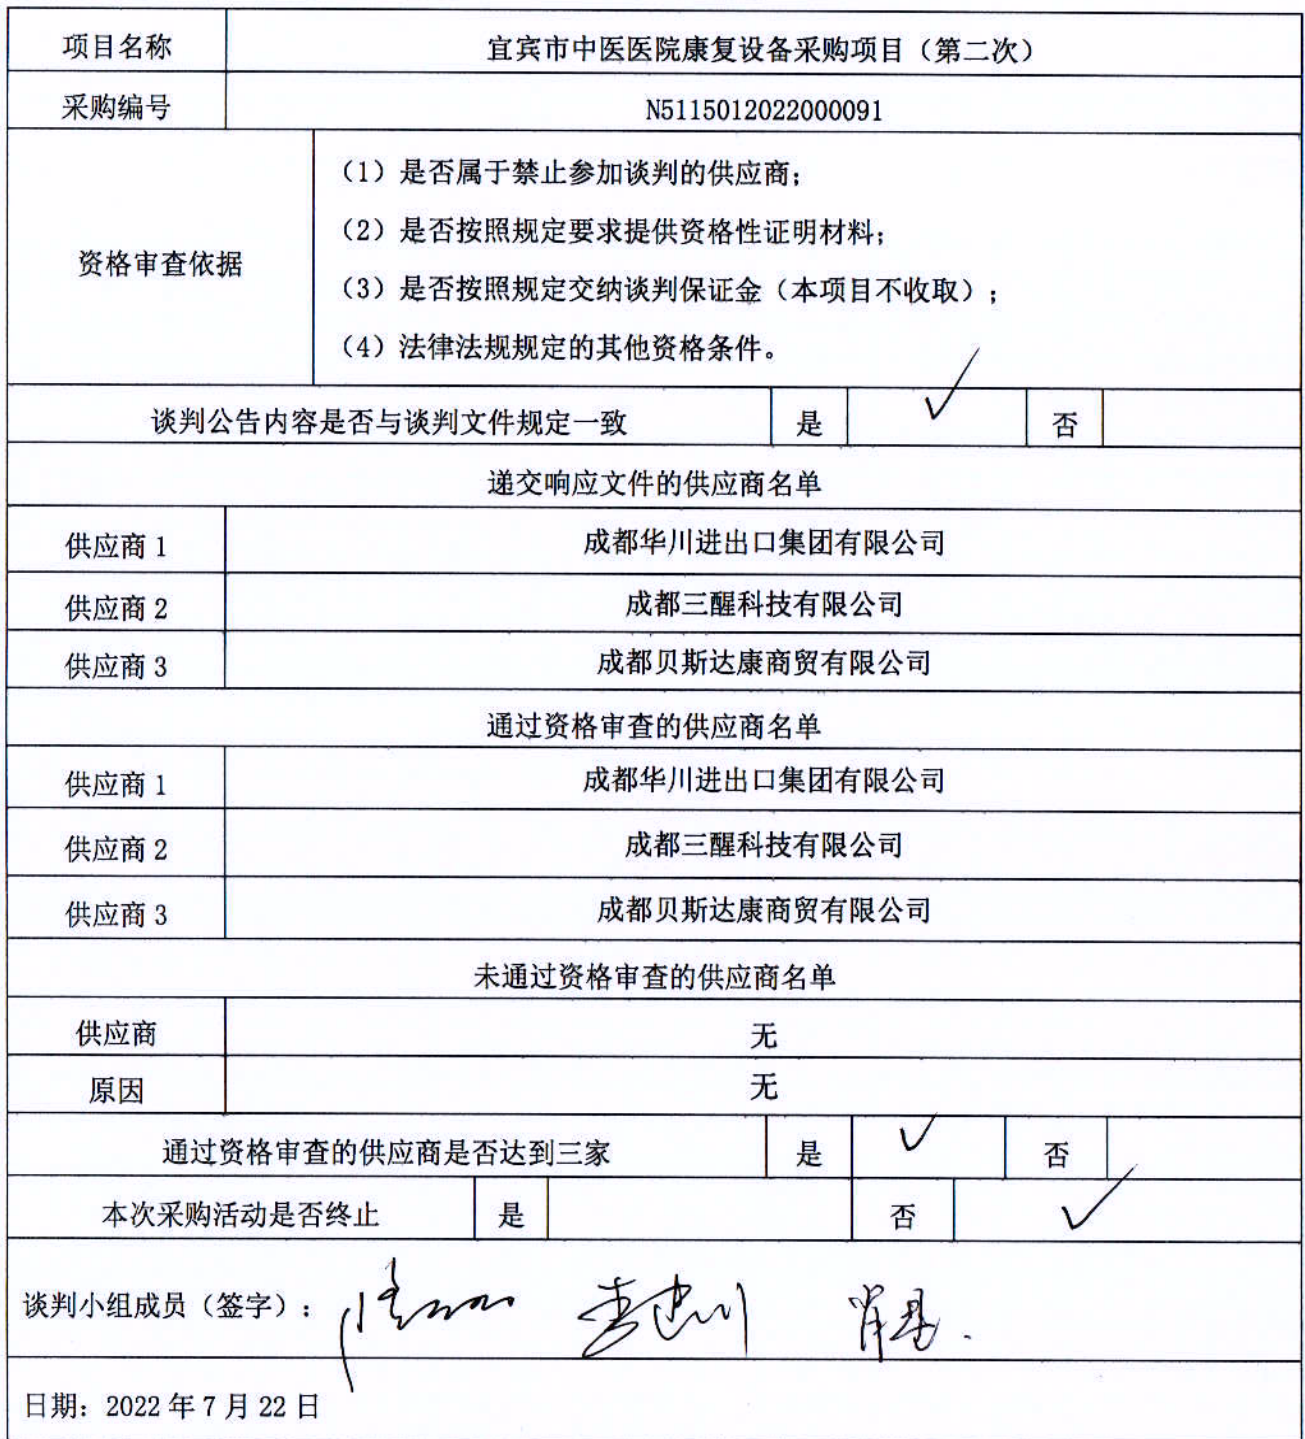 项目名称 宜宾市中医医院康复设备采购项目（第二次）
采购编号 N5115012022000091
资格审查依据
（1）是否属于禁止参加谈判的供应商；
（2）是否按照规定要求提供资格性证明材料；
（3）是否按照规定交纳谈判保证金（本项目不收取）；
（4）法律法规规定的其他资格条件。
谈判公告内容是否与谈判文件规定一致 是 ✓ 否
递交响应文件的供应商名单
供应商 1 成都华川进出口集团有限公司
供应商 2 成都三醒科技有限公司
供应商 3 成都贝斯达康商贸有限公司
通过资格审查的供应商名单
供应商 1 成都华川进出口集团有限公司
供应商 2 成都三醒科技有限公司
供应商 3 成都贝斯达康商贸有限公司
未通过资格审查的供应商名单
供应商 无
原因 无
通过资格审查的供应商是否达到三家 是 ✓ 否
本次采购活动是否终止 是 否 ✓
谈判小组成员（签字）：
日期：2022 年 7 月 22 日